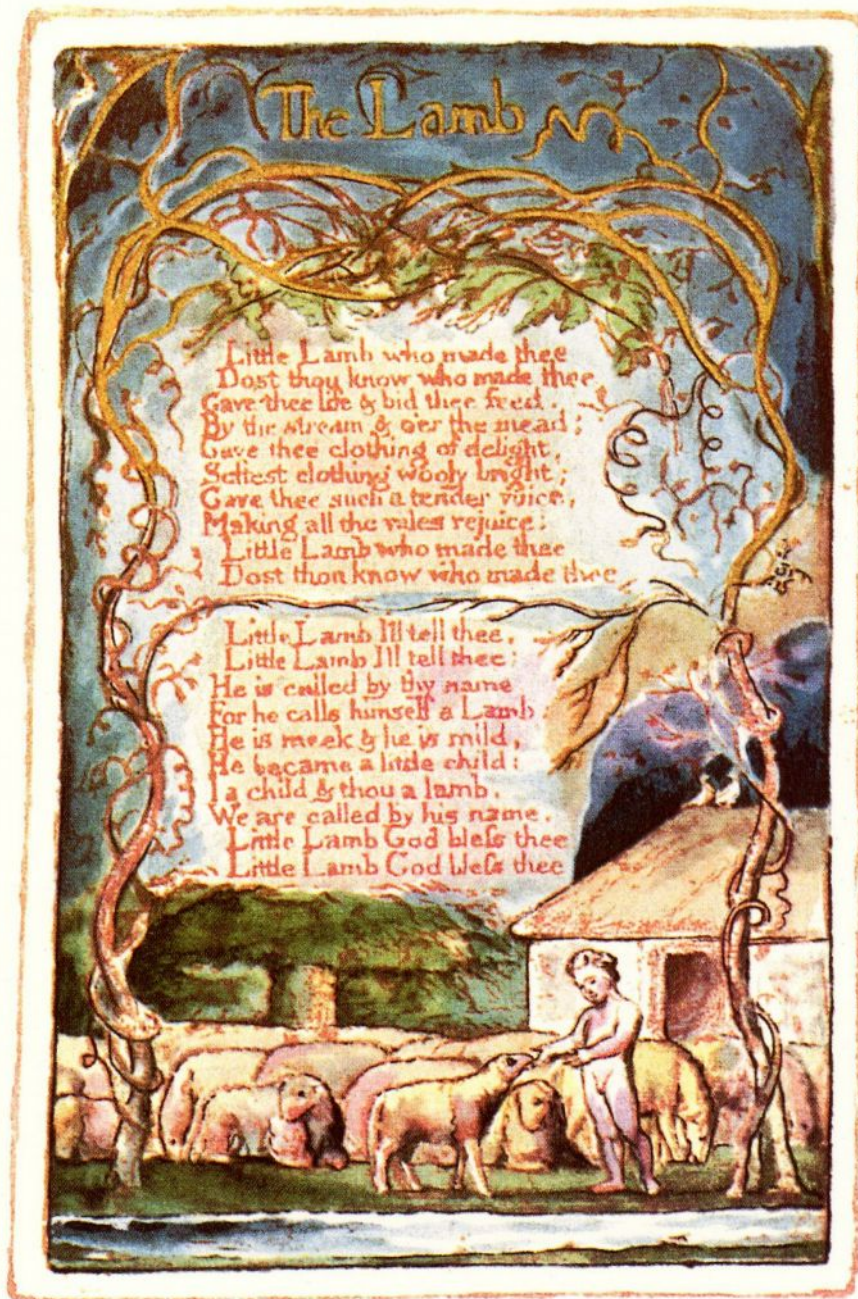 The Lamb
Little Lamb who made thee
Dost thou know who made thee
Gave thee life & bid thee feed.
By the stream & o'er the mead;
Gave thee clothing of delight,
Softest clothing wooly bright;
Gave thee such a tender voice,
Making all the vales rejoice:
Little Lamb who made thee
Dost thou know who made thee
Little Lamb I'll tell thee,
Little Lamb I'll tell thee;
He is called by thy name
For he calls himself a Lamb:
He is meek & he is mild,
He became a little child:
I a child & thou a lamb,
We are called by his name.
Little Lamb God bless thee
Little Lamb God bless thee